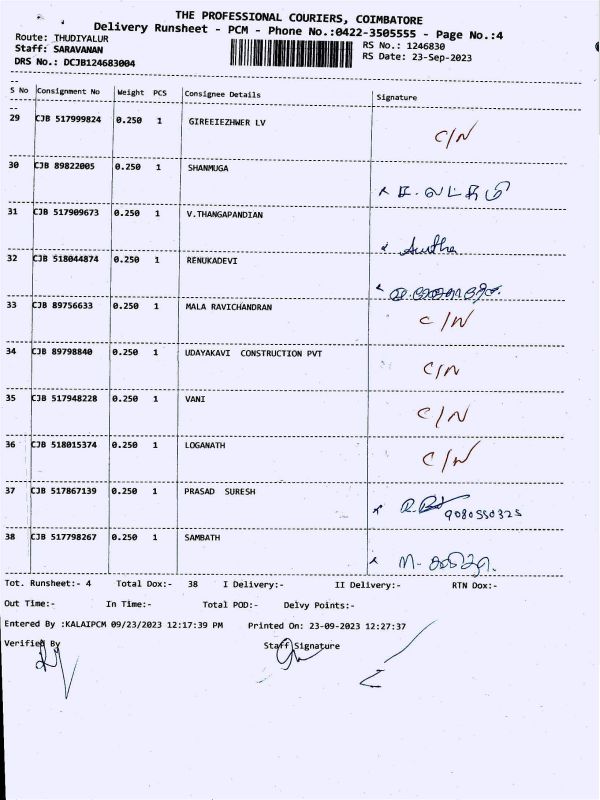 THE PROFESSIONAL COURIERS, COIMBATORE
Delivery Runsheet - PCM - Phone No.:0422-3505555 - Page No.:4
Route: THUDIYALUR RS No.: 1246830
Staff: SARAVANAN RS Date: 23-Sep-2023
DRS No.: DCJB124683004
S No Consignment No Weight PCS Consignee Details Signature
29 CJB 517999824 0.250 1 GIREEIEZHWER LV C/N
30 CJB 89822005 0.250 1 SHANMUGA
31 CJB 517909673 0.250 1 V.THANGAPANDIAN
32 CJB 518044874 0.250 1 RENUKADEVI
33 CJB 89756633 0.250 1 MALA RAVICHANDRAN C/N
34 CJB 89798840 0.250 1 UDAYAKAVI CONSTRUCTION PVT C/N
35 CJB 517948228 0.250 1 VANI C/N
36 CJB 518015374 0.250 1 LOGANATH C/N
37 CJB 517867139 0.250 1 PRASAD SURESH 9080550325
38 CJB 517798267 0.250 1 SAMBATH
Tot. Runsheet:- 4 Total Dox:- 38 I Delivery:- II Delivery:- RTN Dox:-
Out Time:- In Time:- Total POD:- Delvy Points:-
Entered By :KALAIPCM 09/23/2023 12:17:39 PM Printed On: 23-09-2023 12:27:37
Verified By Staff Signature